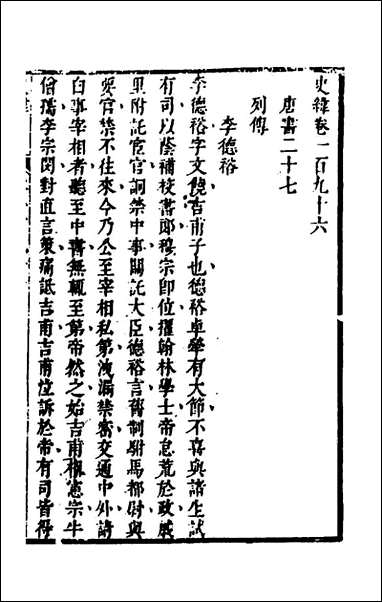 史緯卷一百九十六
唐書二十七
列傳
李德裕
李德裕字文饒吉甫子也德裕卓犖有大節不喜與諸生試
有司以蔭補校書郎穆宗即位擢翰林學士帝怠荒於政戚
里附託宦官詗禁中事關託大臣德裕言舊制駙馬都尉與
要官禁不往來今乃公至宰相私第洩漏禁密交通中外請
白事宰相者聽至中書無輒至第帝然之始吉甫相憲宗牛
僧孺李宗閔對直言策痛詆吉甫吉甫泣訴於帝有司皆得